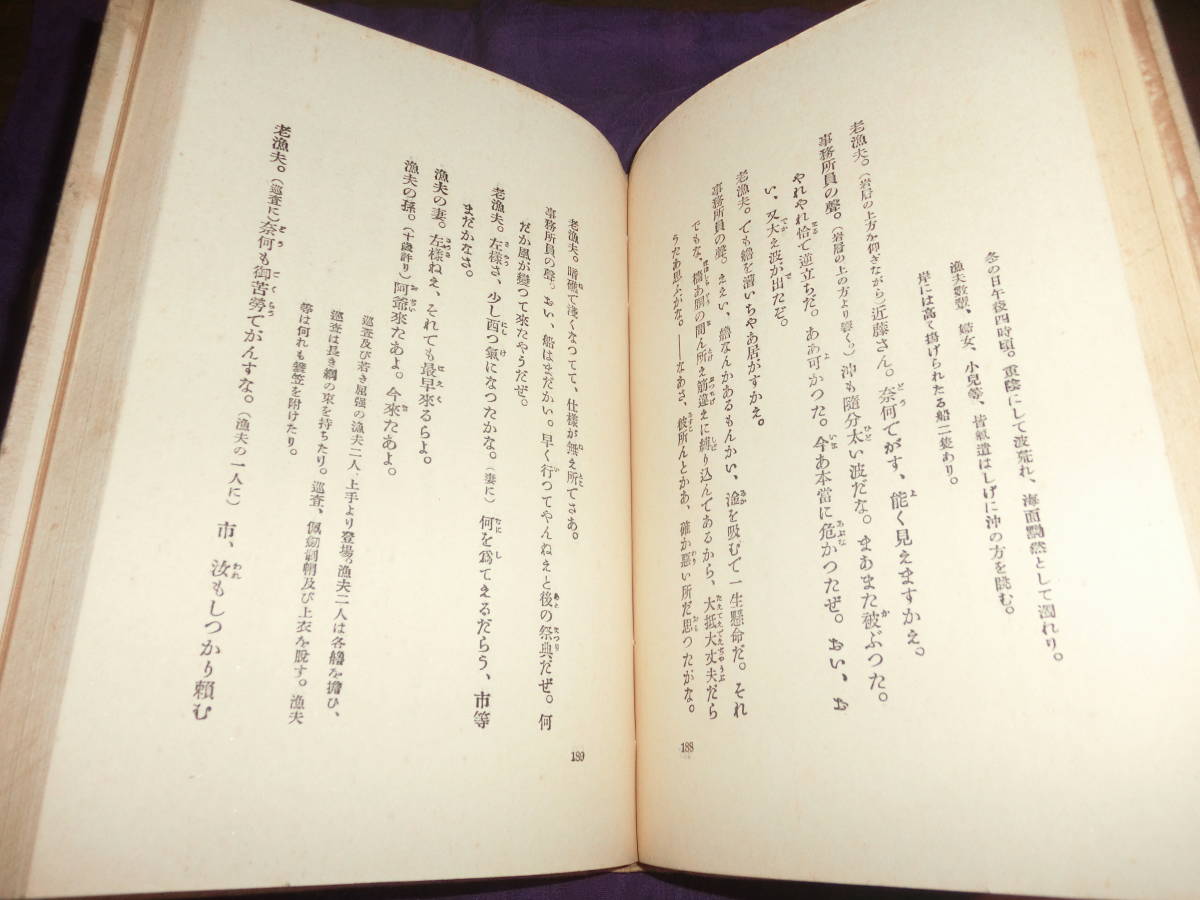 冬の日午後四時頃。重陰にして波荒れ、海面黝然として濁れり。
漁夫數輩、婦女、小兒等、皆氣遣はしげに沖の方を眺む。
岸には高く揚げられたる船二隻あり。
老漁夫。(岩層の上方を仰ぎながら)近藤さん。奈何でがす、能く見えますかえ。
事務所員の聲。(岩層の上の方より響く。)沖も隨分太い波だな。まあまた被ぶつた。
やれやれ恰で逆立ちだ。ああ可かつた。今あ本當に危かつたぜ。おい、お
い、又大え波が出ただぞ。
老漁夫。でも船を漕いちやあ居がすかえ。
事務所員の聲。ええい、艪なんかあるもんかい、淦を吸むで一生懸命だ。それ
でもな、檣あ間の間ん所え筋違えに縛り込んてあるから、大抵大丈夫だら
うたあ思ふがな。――なあさ、彼所んとかあ、確か惡い所だ思つたがな。
188
老漁夫。暗礁で淺くなつてて、仕樣が無え所でさあ。
事務所員の聲。おい、船はまだかい。早く行つてやんねえと後の祭典だぜ。何
だか風が變つて來たやうだぜ。
老漁夫。左樣さ、少し西つ氣になつたかな。(妻に)何を爲てえるだらう、市等
まだかなさ。
漁夫の妻。左樣ねえ、それでも最早來るらよ。
漁夫の孫。(十歳許り)阿爺來たあよ。今來たあよ。
巡査及び若き屈强の漁夫二人、上手より登場。漁夫二人は各艪を擔ひ、
巡査は長き綱の束を持ちたり。巡査、佩劒制帽及び上衣を脫す。漁夫
等は何れも簑笠を附けたり。
老漁夫。(巡査に)奈何も御苦勞でがんすな。(漁夫の一人に)市、汝もしつかり賴む
189